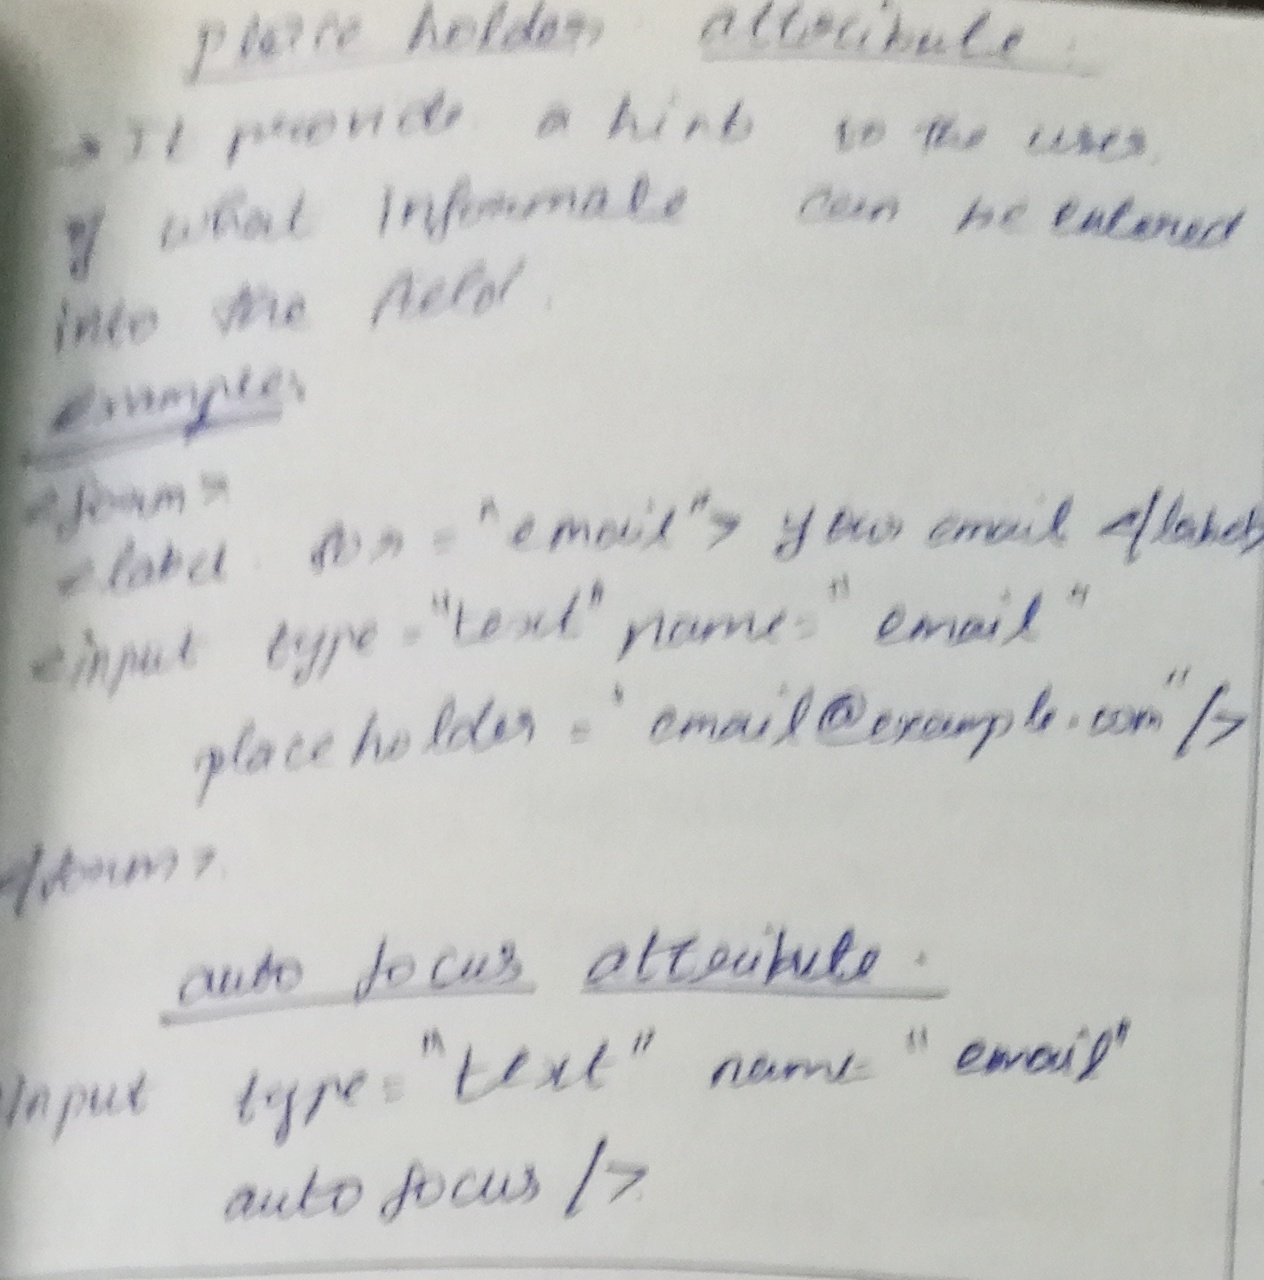 place holder attribute :
→ It provide a hint to the user
of what informate can be entered
into the field.
examples
<form>
<label for = "email"> your email </label>
<input type = "text" name = "email"
placeholder = "email@example.com" />
</form>.
auto focus attribute .
input type = "text" name = "email"
auto focus />